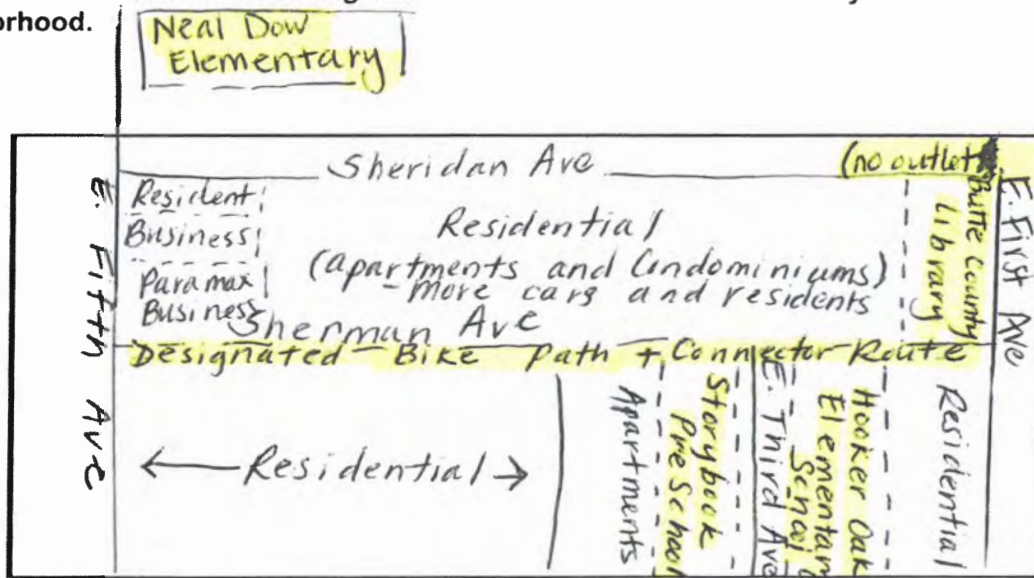 orhood.
Neal Dow
Elementary
Sheridan Ave
(no outlet)
E. Fifth Ave
Resident
Business
Paramax
Business
Residential
(apartments and Condominiums)
more cars and residents
Butte County
Library
E. First Ave
Sherman Ave
Designated Bike path + Connector Route
← Residential →
Apartments
Storybook
PreSchool
E. Third Ave
Hooker Oak
Elementary
School
Residential